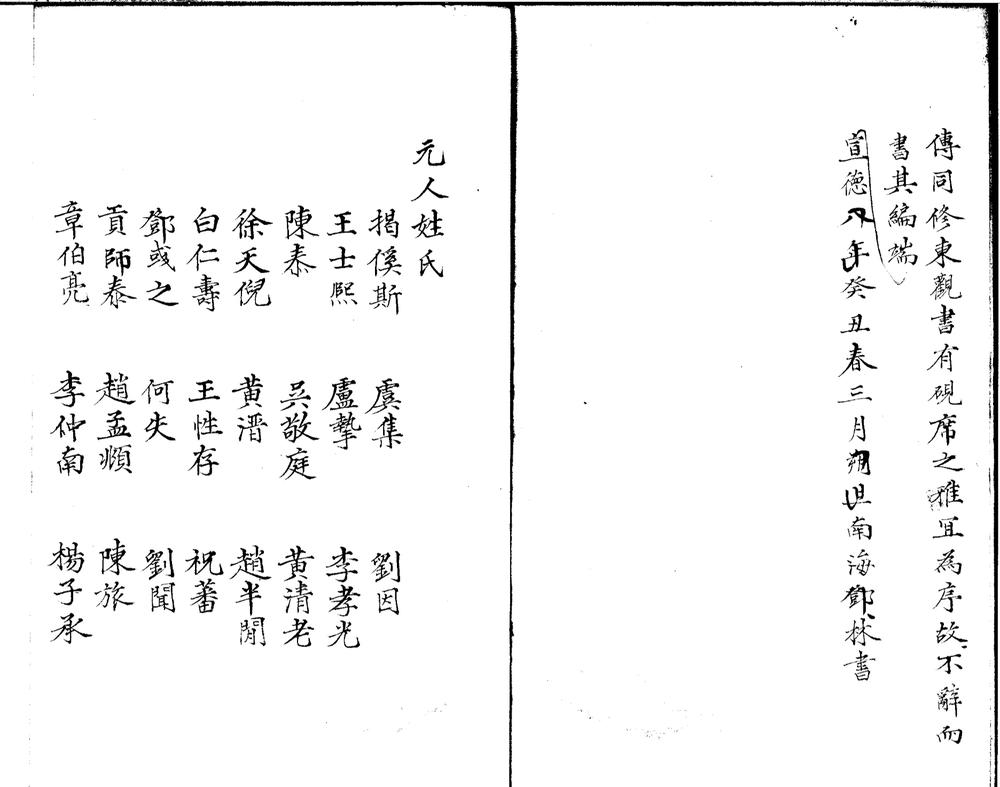 傳同修東觀書有硯席之雅宜為序故不辭而
書其編端
宣德八年癸丑春三月朔旦南海鄧林書
元人姓氏
揭傒斯 虞集 劉因
王士熙 盧摯 李孝光
陳泰 吳敬庭 黃清老
徐天倪 黃溍 趙半閒
白仁壽 王性存 祝蕃
鄧彧之 何失 劉聞
貢師泰 趙孟頫 陳旅
章伯亮 李仲南 楊子承